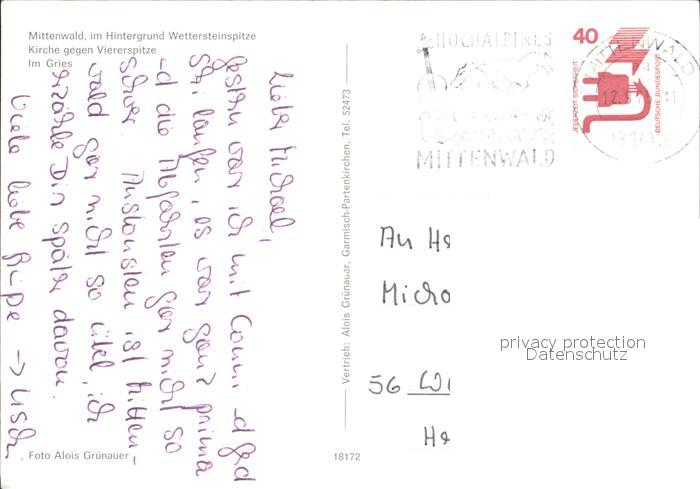 Mittenwald, im Hintergrund Wettersteinspitze
Kirche gegen Viererspitze
Im Gries
Lieber Michael,
gestern war ich mit Conni
Ski laufen, es war ganz prima
die Abfahrten gar nicht so
schwer. Ansonsten ist Mitten-
wald gar nicht so übel, ich
erzähle Dir später davon.
Viele liebe Grüße →
Foto Alois Grünauer
18172
Vertrieb: Alois Grünauer, Garmisch-Partenkirchen, Tel. 52473
HOCHALPINES
MITTENWALD
40
JEDERZEIT SICHERHEIT
DEUTSCHE BUNDESPOST
MITTENWALD
An He
Micha
56 Wu
privacy protection
Datenschutz